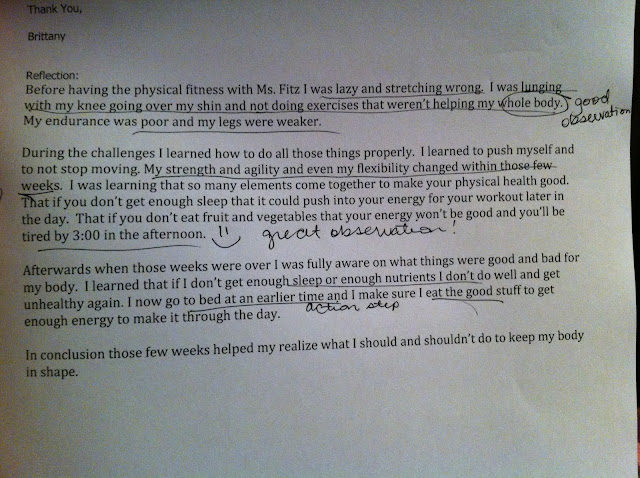 Thank You,
Brittany
Reflection:
Before having the physical fitness with Ms. Fitz I was lazy and stretching wrong. I was lunging
with my knee going over my shin and not doing exercises that weren't helping my whole body.
good
observation
My endurance was poor and my legs were weaker.
During the challenges I learned how to do all those things properly. I learned to push myself and
to not stop moving. My strength and agility and even my flexibility changed within those few
weeks. I was learning that so many elements come together to make your physical health good.
That if you don't get enough sleep that it could push into your energy for your workout later in
the day. That if you don't eat fruit and vegetables that your energy won't be good and you'll be
tired by 3:00 in the afternoon. great observation!
Afterwards when those weeks were over I was fully aware on what things were good and bad for
my body. I learned that if I don't get enough sleep or enough nutrients I don't do well and get
unhealthy again. I now go to bed at an earlier time and I make sure I eat the good stuff to get
action step
enough energy to make it through the day.
In conclusion those few weeks helped my realize what I should and shouldn't do to keep my body
in shape.